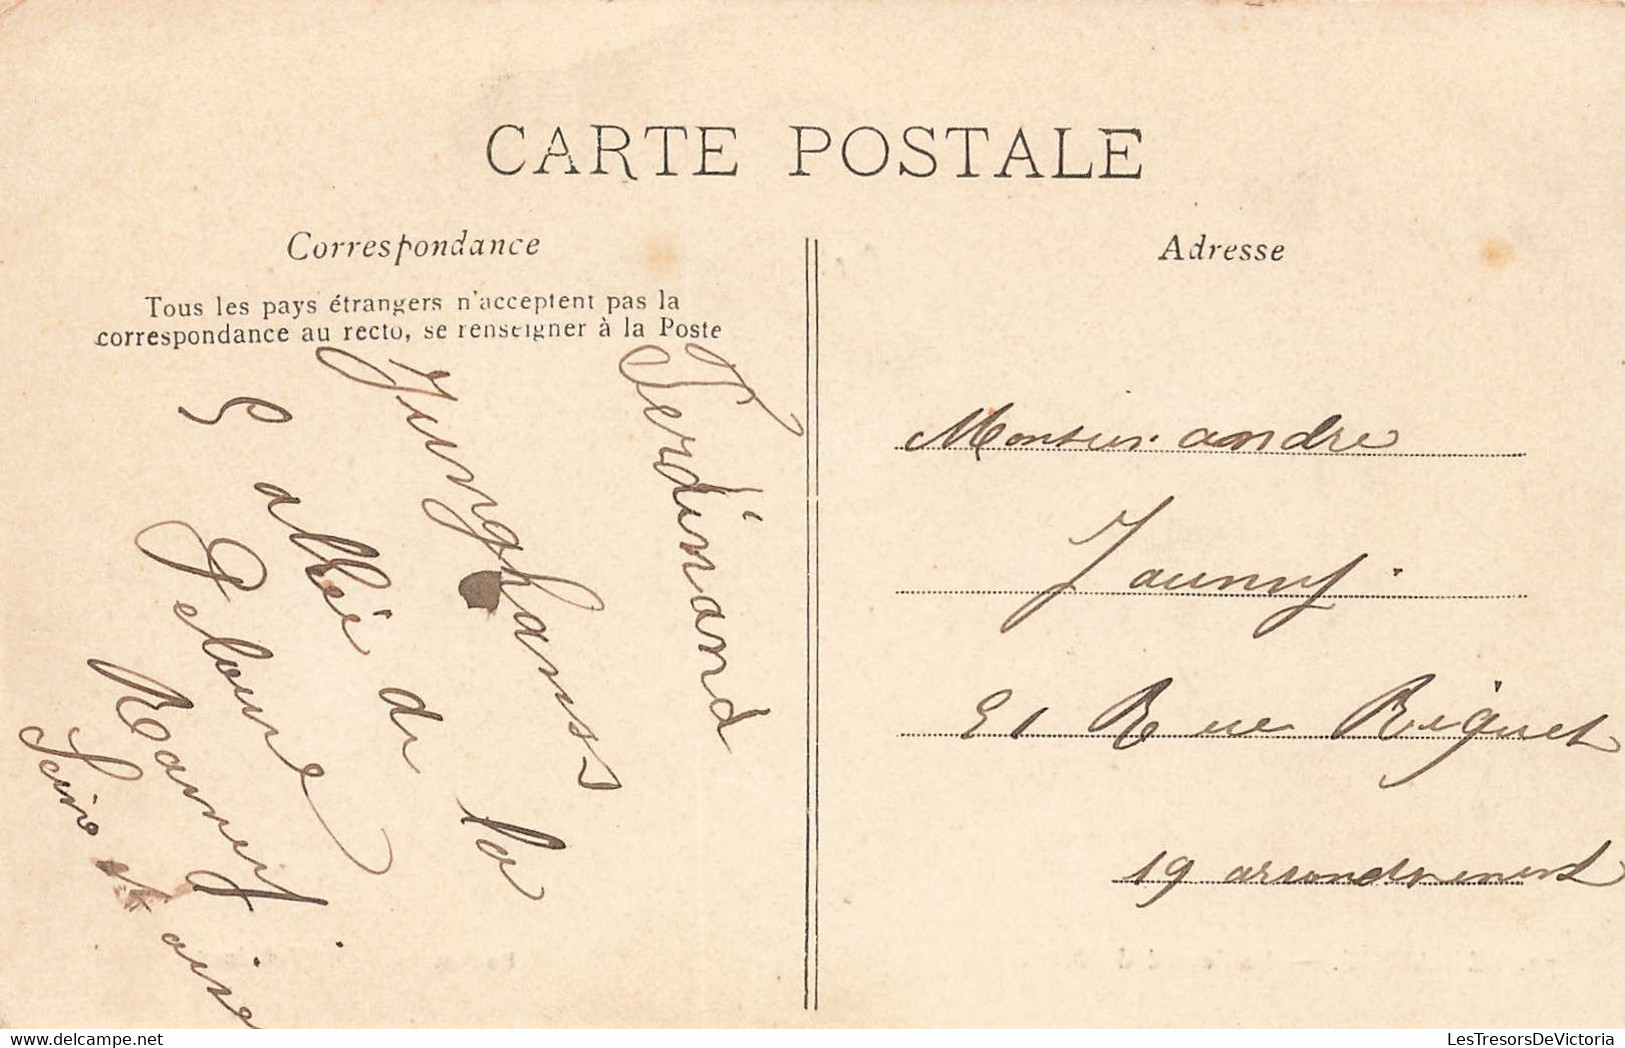 CARTE POSTALE
Correspondance
Tous les pays étrangers n'acceptent pas la
correspondance au recto, se renseigner à la Poste
Ferdinand
Junghanss
5 allée de la
Pelouse
Raincy
Seine et oise
Adresse
Monsieur andre
Jauny
21 Rue Riquet
19 arrondissement
LesTresorsDeVictoria
delcampe.net